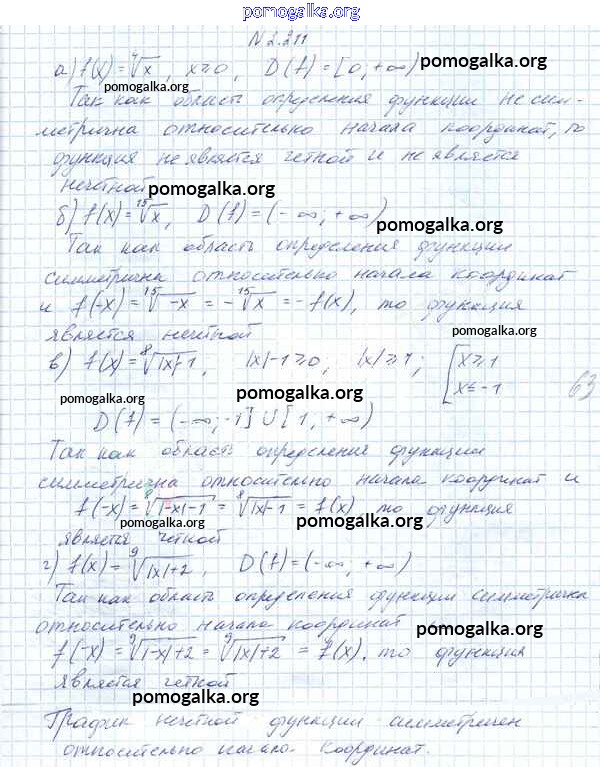 pomogalka.org
N 2.211
а) f(x) = ⁴√x, x≥0, D(f) = [0; +∞) pomogalka.org
pomogalka.org
Так как область определения функции не сим-
метрична относительно начала координат, то
функция не является четной и не является
нечетной pomogalka.org
б) f(x) = ¹⁵√x, D(f) = (-∞; +∞)
pomogalka.org
Так как область определения функции
симметрична относительно начала координат
и f(-x) = ¹⁵√-x = -¹⁵√x = -f(x), то функция
является нечетной pomogalka.org
в) f(x) = ⁸√|x|-1, |x|-1≥0, |x|≥1; [x≥1
x≤-1 63
pomogalka.org pomogalka.org
D(f) = (-∞; -1] ∪ [1; +∞)
Так как область определения функции
pomogalka.org
симметрична относительно начала координат и
f(-x) = ⁸√|-x|-1 = ⁸√|x|-1 = f(x) то функция
pomogalka.org pomogalka.org
является четной
г) f(x) = ⁹√|x|+2, D(f) = (-∞; +∞)
pomogalka.org
Так как область определения функции симметрична
относительно начала координат
pomogalka.org
f(-x) = ⁹√|-x|+2 = ⁹√|x|+2 = f(x), то функция
является четной
pomogalka.org
График нечетной функции симметричен
относительно начала координат.